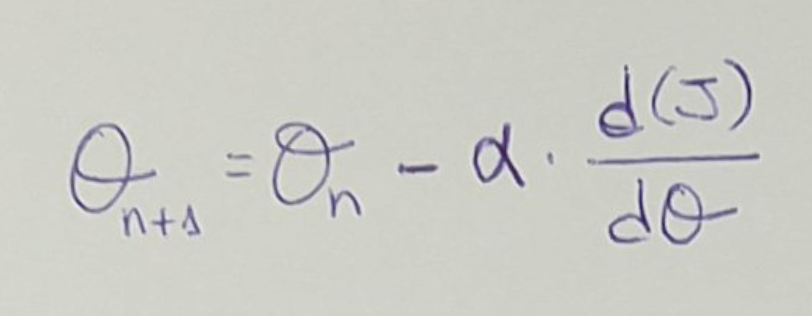 θₙ₊₁ = θₙ - α · d(J)/dθ